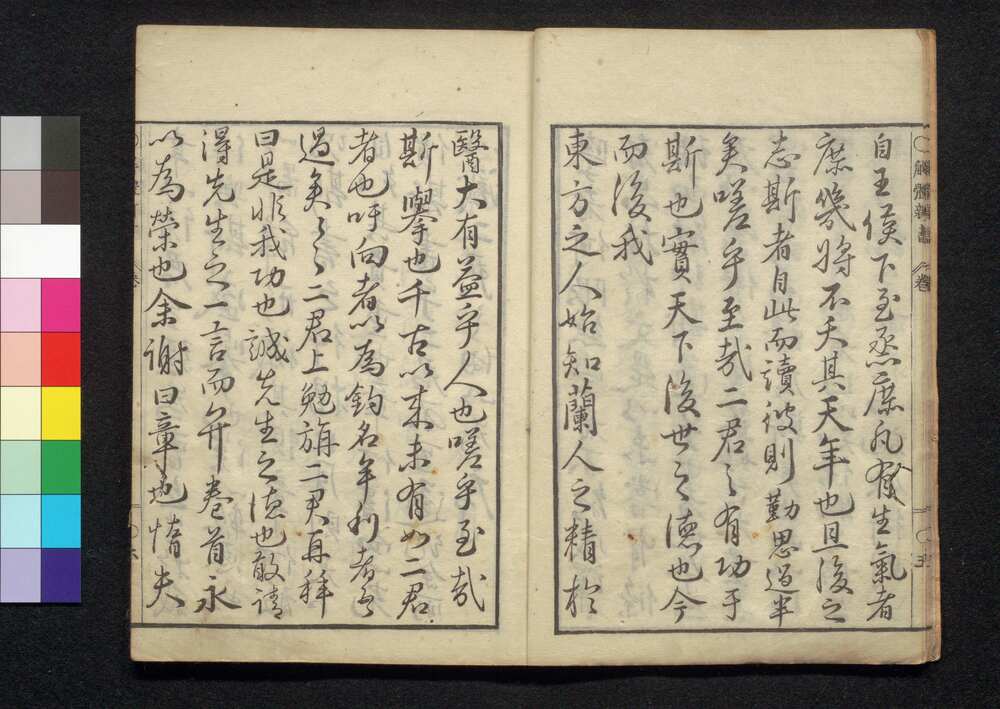 解體新書
序卷
五
自王侯下至烝庶凡有生氣者
庶幾將不夭其天年也且後之
志斯者自此而讀彼則勤思過半
矣嗟乎至哉二君之有功于
斯也實天下後世之德也今
而後我
東方之人始知蘭人之精於
醫大有益乎人也嗟乎至哉
斯擧也千古以來未有如二君
者也吁向者以為釣名牟利者吾
過矣々々二君上勉旃二君再拜
曰是非我功也誠先生之德也敢請
得先生之一言而弁卷首永
以為榮也余謝曰章也惰夫